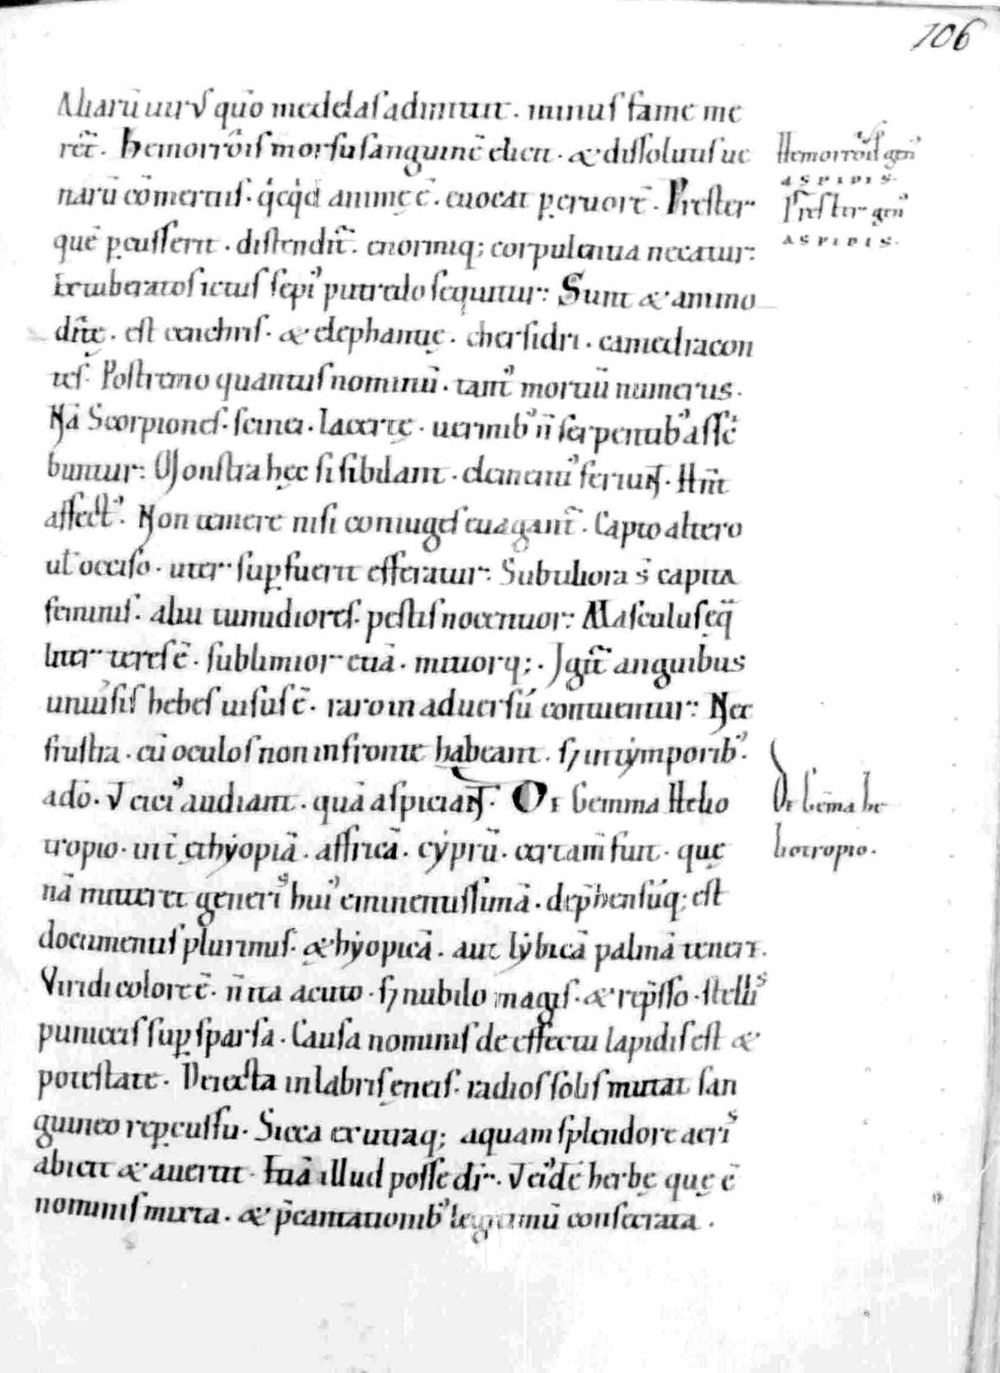 106
Aliarū uirꝰ quō medelas admittit . minus fame me
ret̄ . hemorrōis morsu sanguinē elicit . & dissolutis ue
narū cōmertiis . q̇cq̇d animę ē . euocat p̱ cruorē . Prester
quē p̱cusserit . distendit̄ . enormiq; corpulentia necatur :
Extuberatos ictus sepiꝰ putredo sequitur : Sunt & ammo
ditę . est cenchris . & elephantię . chersidri . camedracon
tes . Postremo quantus nominū . tantꝰ mortiū numerus .
Nā Scorpiones . scinci . lacertę . uermibꝰ n̄ serpentibꝰ ass͛c
buntur : Monstra hęc si sibilant . clementiꝰ feriunt . Hn̄t
affectꝰ . Non temere nisi coniuges euagant̄ . Capto altero
ul̄ occiso . uter sup̱fuerit efferatur : Subtiliora s̄ capita
feminis . alui tumidiores . pestis nocentior : Masculus ęq̄
liter teres ē . sublimior etiā . mitiorq; . Igit̄ anguibus
uniuˀsis hebes uisus ē . raro in aduersū contuentur : Nec
frustra . cū oculos non in fronte habeant . sꝫ in tẏmporibꝰ .
adō . ut citiꝰ audiant . quā aspiciant . De Gemma Helio
tropio . int̄ ęthẏopiā . affricā . cẏprū . certam̄ fuit . quę
nā mitteret generis huiꝰ eminentissimā . dep̄hensūq; est
documentis plurimis . ęthẏopicā . aut lẏbicā palmā tenere .
Viridi colore ē . n̄ ita acuto . sꝫ nubilo magis . & rep̄sso . stellis
puniceis sup̱sparsa . Causa nominis de effectu lapidis est &
potestate . Deiecta in labris ęneis . radios solis mutat san
guineo rep̱cussu . Sicca extraq; aquam splendore aeris
abicit & auertit . Etiā illud posse dr̄ . ut eiꝰdē herbę quę ē
nominis mixta . & p̄cantationibꝰ legitimū consecrata .
Hemorrois genꝰ
ASPIDIS .
Prester genꝰ
ASPIDIS .
De Gēma he
liotropio .